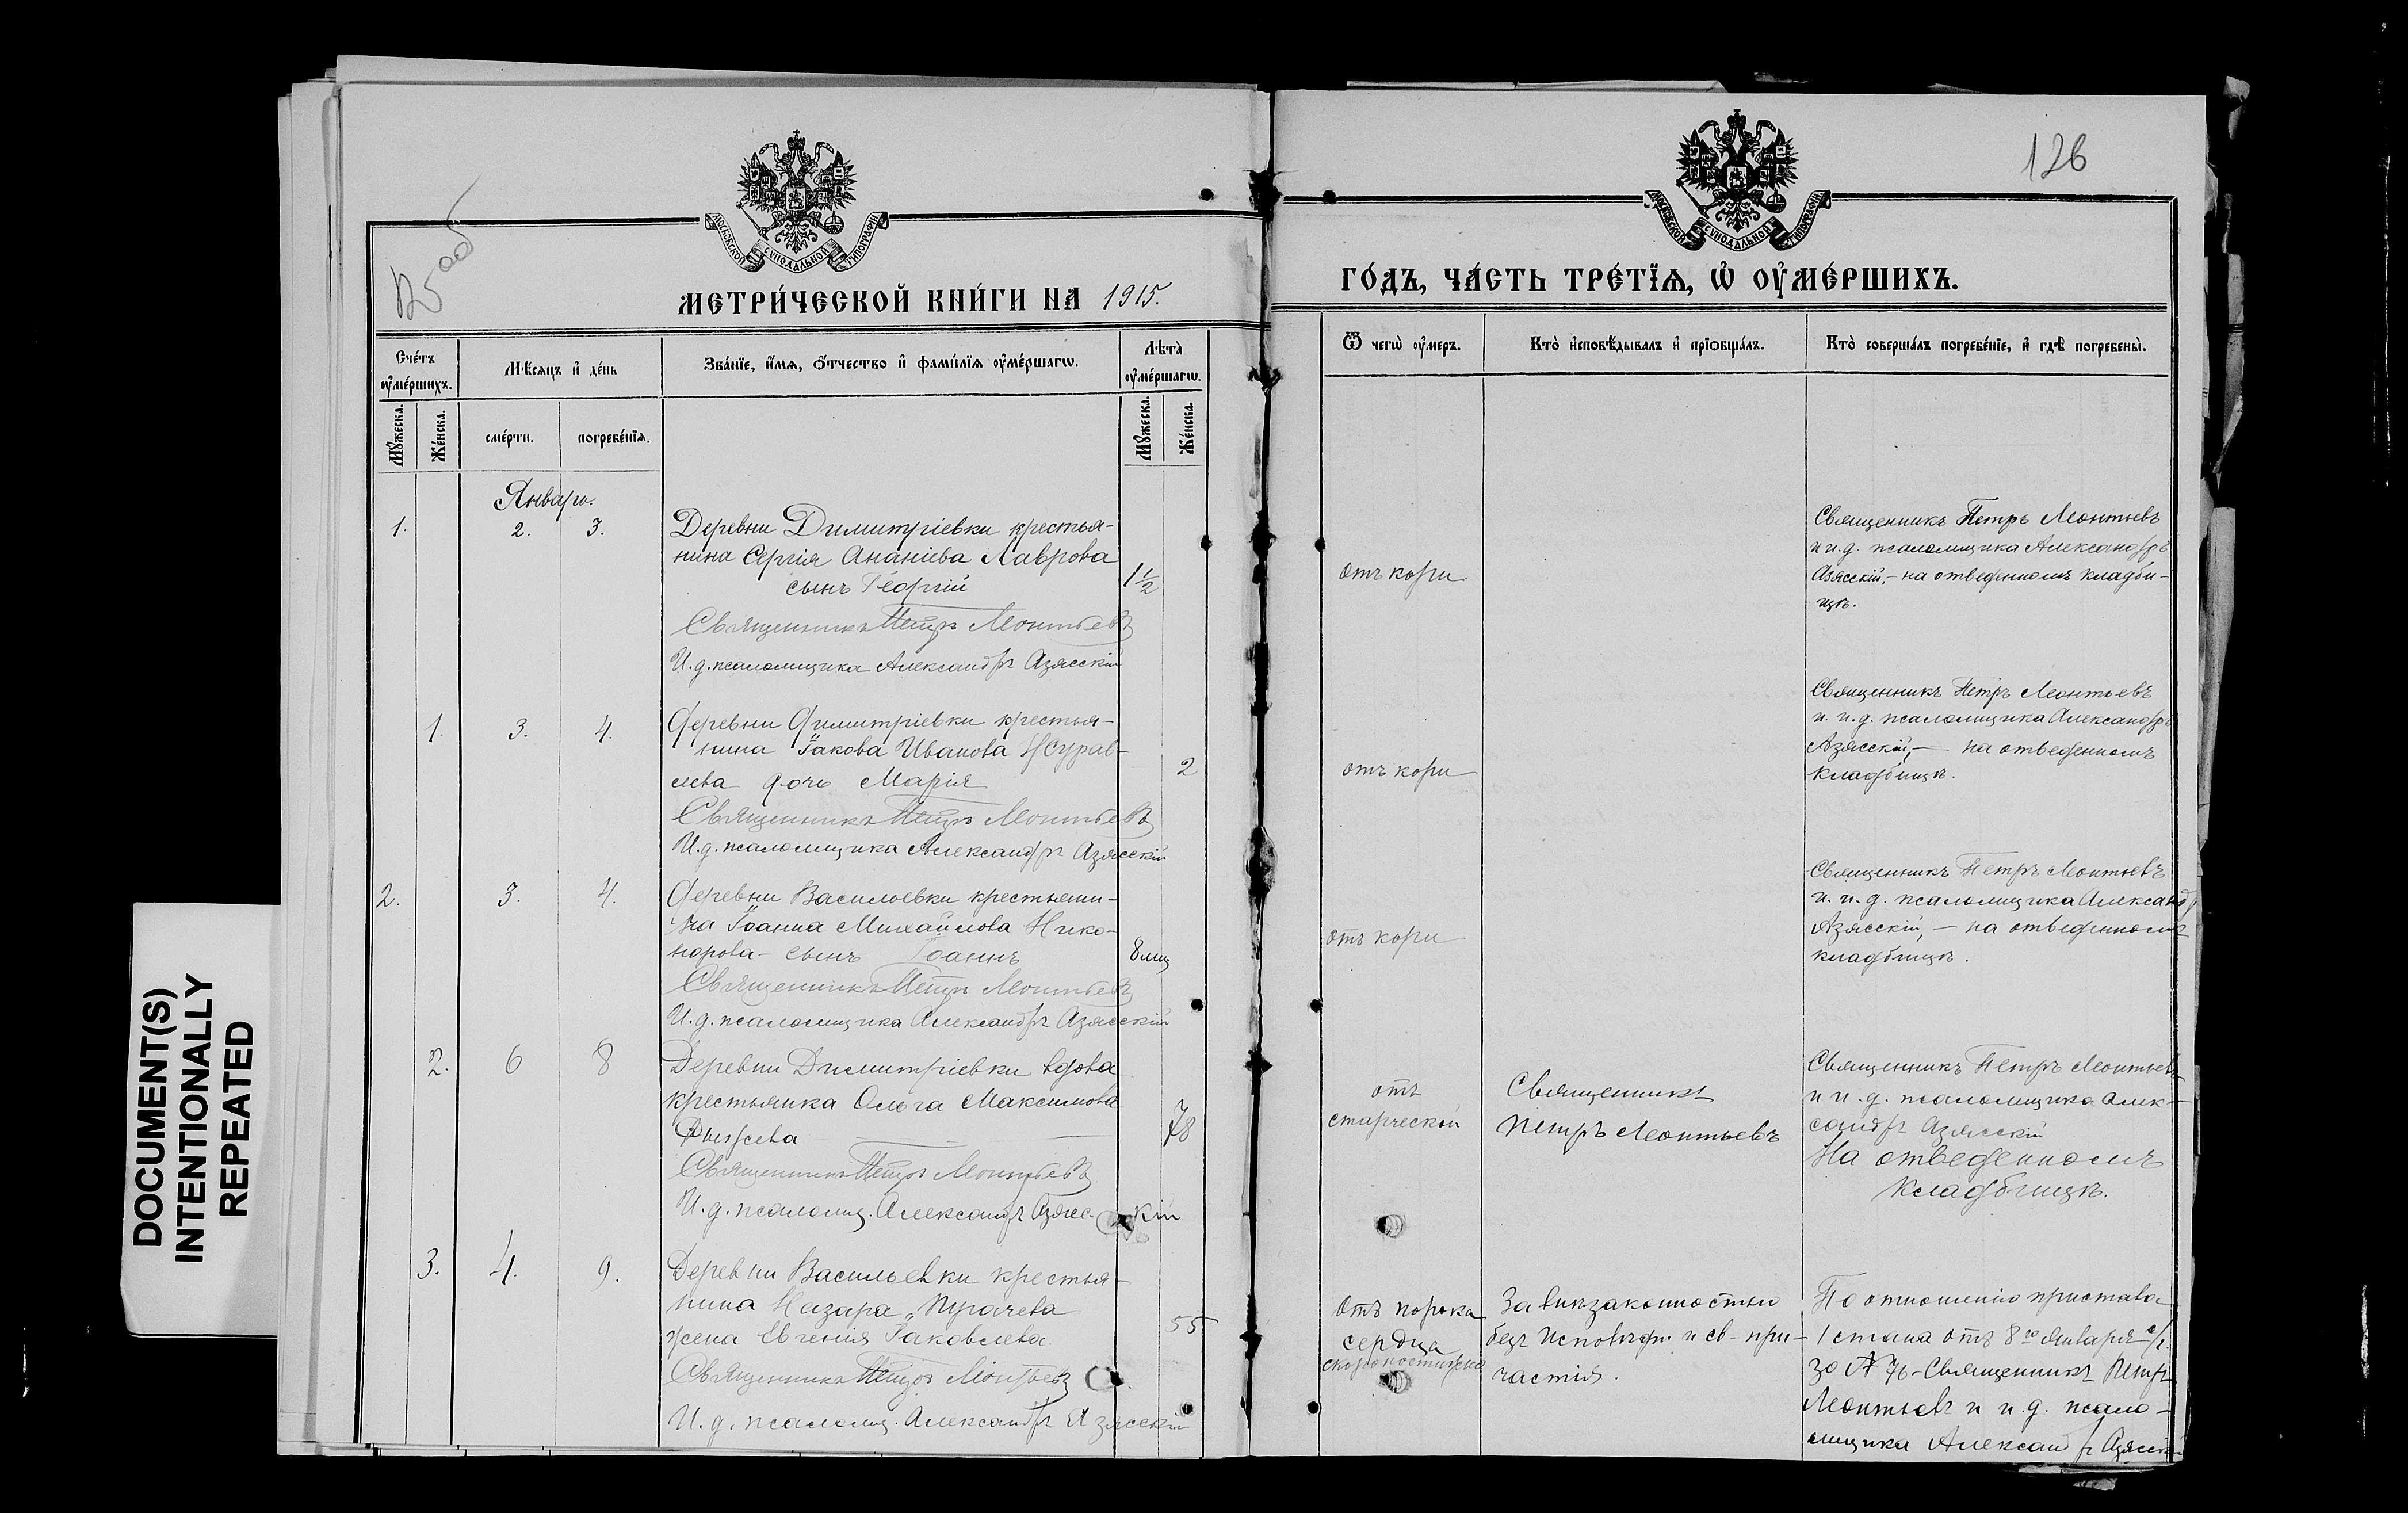 126
125 об
МОСКОВСКОЙ СѴНОДАЛЬНОЙ ТИПОГРАФІИ
МОСКОВСКОЙ СѴНОДАЛЬНОЙ ТИПОГРАФІИ
МЕТРИ́ЧЕСКОЙ КНИ́ГИ НА 1915.
ГО́ДЪ, ЧА́СТЬ ТРЕ́ТЇѦ, Ѡ҆ ОУ҆МЕ́РШИХЪ.
Сче́тъ оу҆ме́ршихъ.
Мѣ́сяцъ и҆ де́нь
Зва́нїе, и҆́мѧ, ѻ҆́тчество и҆ фами́лїѧ оу҆ме́ршагѡ.
Лѣта̀ оу҆ме́ршагѡ.
Ѿ чегѡ̀ оу҆́меръ.
Кто̀ и҆сповѣ́дывалъ и҆ прїѻбща́лъ.
Кто̀ соверша́лъ погребе́нїе, и҆ гдѣ̀ погребены̀.
Мꙋ́жеска.
Же́нска.
сме́рти.
погребе́нїѧ.
Мꙋ́жеска.
Же́нска.
Январь.
1. 2. 3.
Деревни Димитріевки крестья-
нина Сергія Ананіева Лаврова
сынъ Георгій
1½
Священникъ Петръ Леонтьевъ
И.д. псаломщика Александръ Азясскій
отъ кори.
Священникъ Петръ Леонтьевъ
и и.д. псаломщика Александръ
Азясскій,- на отведенномъ кладби-
щѣ.
1. 3. 4.
Деревни Димитріевки крестья-
нина Іакова Иванова Журав-
лева дочь Марія
2
Священникъ Петръ Леонтьевъ
И.д. псаломщика Александръ Азясскій
отъ кори
Священникъ Петръ Леонтьевъ
и. и.д. псаломщика Александръ
Азясскій,- на отведенномъ
кладбищѣ.
2. 3. 4.
Деревни Васильевки крестьяни-
на Іоанна Михайлова Нико-
норова- сынъ Іоаннъ
8 мц
Священникъ Петръ Леонтьевъ
И.д. псаломщика Александръ Азясскій
отъ кори
Священникъ Петръ Леонтьевъ
и. и.д. псаломщика Александр
Азясскій,- на отведенномъ
кладбищѣ.
2. 6 8
Деревни Димитріевки вдова
крестьянка Ольга Максимова
78
Священникъ Петръ Леонтьевъ
И.д. псаломщ. Александръ Азясскій
отъ
старческой
Священникъ
Петръ Леонтьевъ
Священникъ Петръ Леонтьевъ
и и.д. псаломщика Алек-
сандръ Азясскій
На отведенномъ
кладбищѣ.
3. 4. 9.
Деревни Васильевки крестья-
нина Назара Пугачева
жена Евгенія Іаковлева
55
Священникъ Петръ Леонтьевъ
И.д. псаломщ. Александръ Азясскій
Отъ порока
сердца
скоропостижно
За внѣзапностью
безъ исповѣди и св- при-
частія.
По отношенію пристава
1 стана отъ 8го Января с/г.
за № 76- Священникъ Петръ
Леонтьевъ и и.д. псало-
мщика Александръ Азясскій
DOCUMENT(S)
INTENTIONALLY
REPEATED